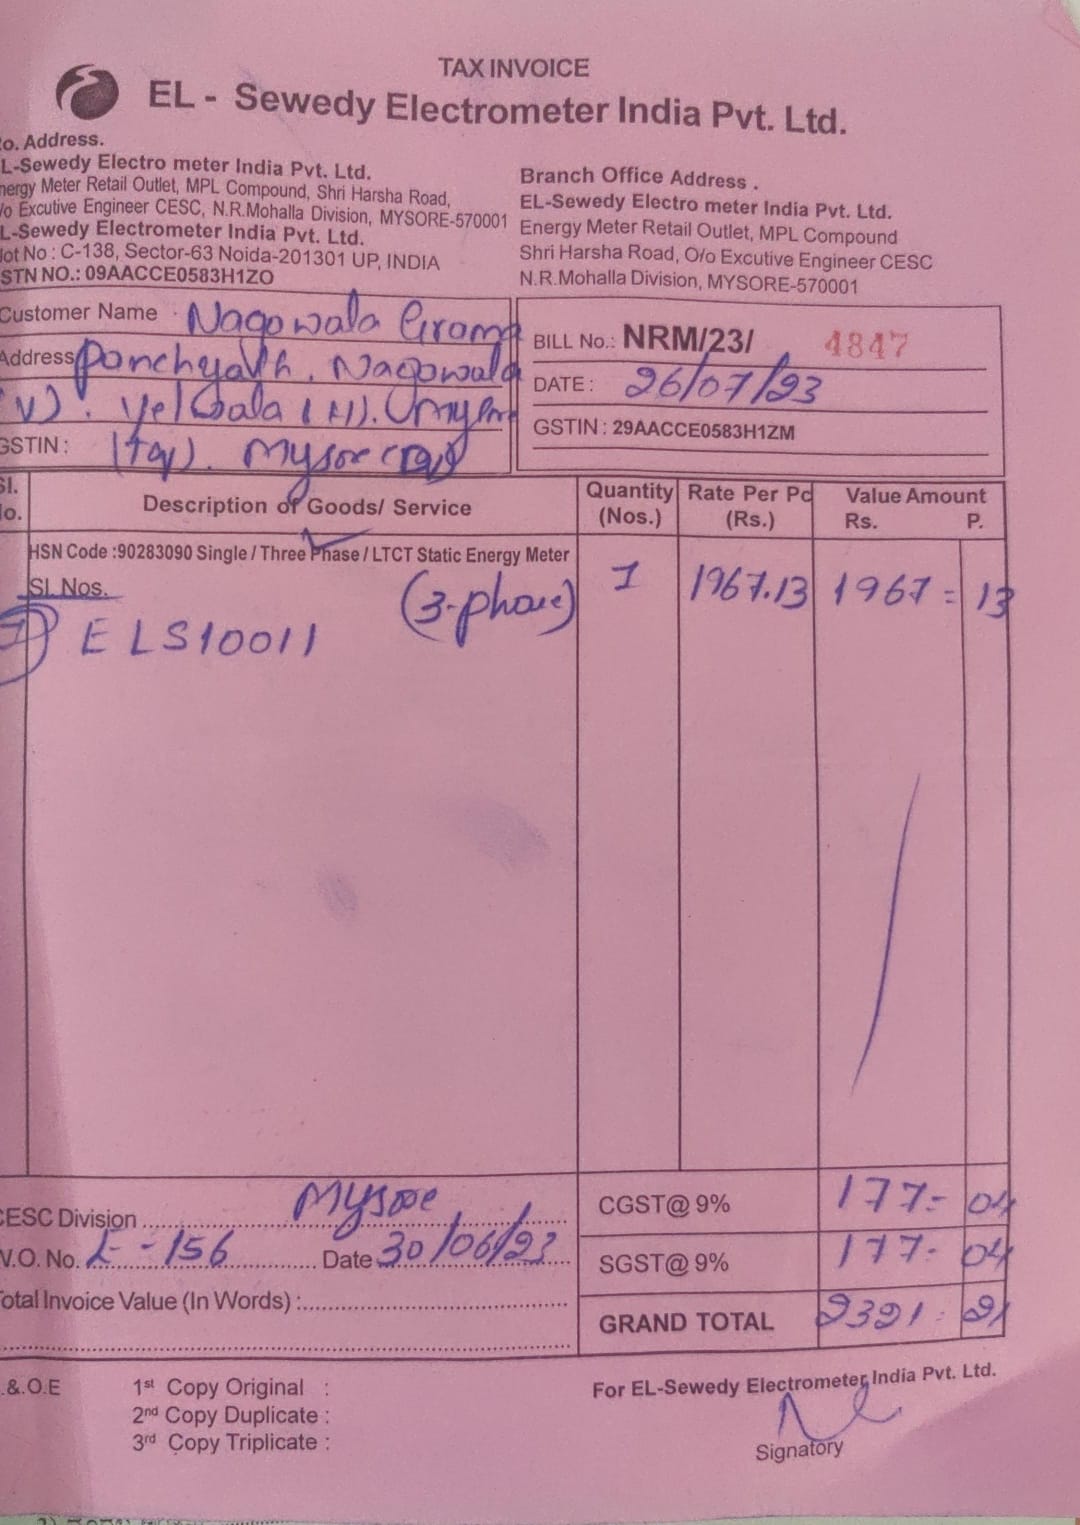 TAX INVOICE
EL - Sewedy Electrometer India Pvt. Ltd.
o. Address.
L-Sewedy Electro meter India Pvt. Ltd.
nergy Meter Retail Outlet, MPL Compound, Shri Harsha Road,
/o Excutive Engineer CESC, N.R.Mohalla Division, MYSORE-570001
L-Sewedy Electrometer India Pvt. Ltd.
lot No : C-138, Sector-63 Noida-201301 UP, INDIA
STN NO.: 09AACCE0583H1ZO
Branch Office Address .
EL-Sewedy Electro meter India Pvt. Ltd.
Energy Meter Retail Outlet, MPL Compound
Shri Harsha Road, O/o Excutive Engineer CESC
N.R.Mohalla Division, MYSORE-570001
Customer Name Nagowala Grama
Address Panchyath. Nagowala
(V). Yelwala (H).
GSTIN : (Tq). Mysore
BILL No.: NRM/23/ 4847
DATE : 26/07/23
GSTIN : 29AACCE0583H1ZM
Sl. No. Description of Goods/ Service Quantity (Nos.) Rate Per Pc (Rs.) Value Amount Rs. P.
HSN Code :90283090 Single / Three Phase / LTCT Static Energy Meter
Sl. Nos. (3-phase) 1 1967.13 1967 = 13
1) ELS10011
CESC Division Mysore
W.O. No. E-156 Date 30/06/23
Total Invoice Value (In Words) :
CGST@ 9% 177- 04
SGST@ 9% 177- 04
GRAND TOTAL 2321. 21
.&.O.E
1st Copy Original :
2nd Copy Duplicate :
3rd Copy Triplicate :
For EL-Sewedy Electrometer India Pvt. Ltd.
Signatory